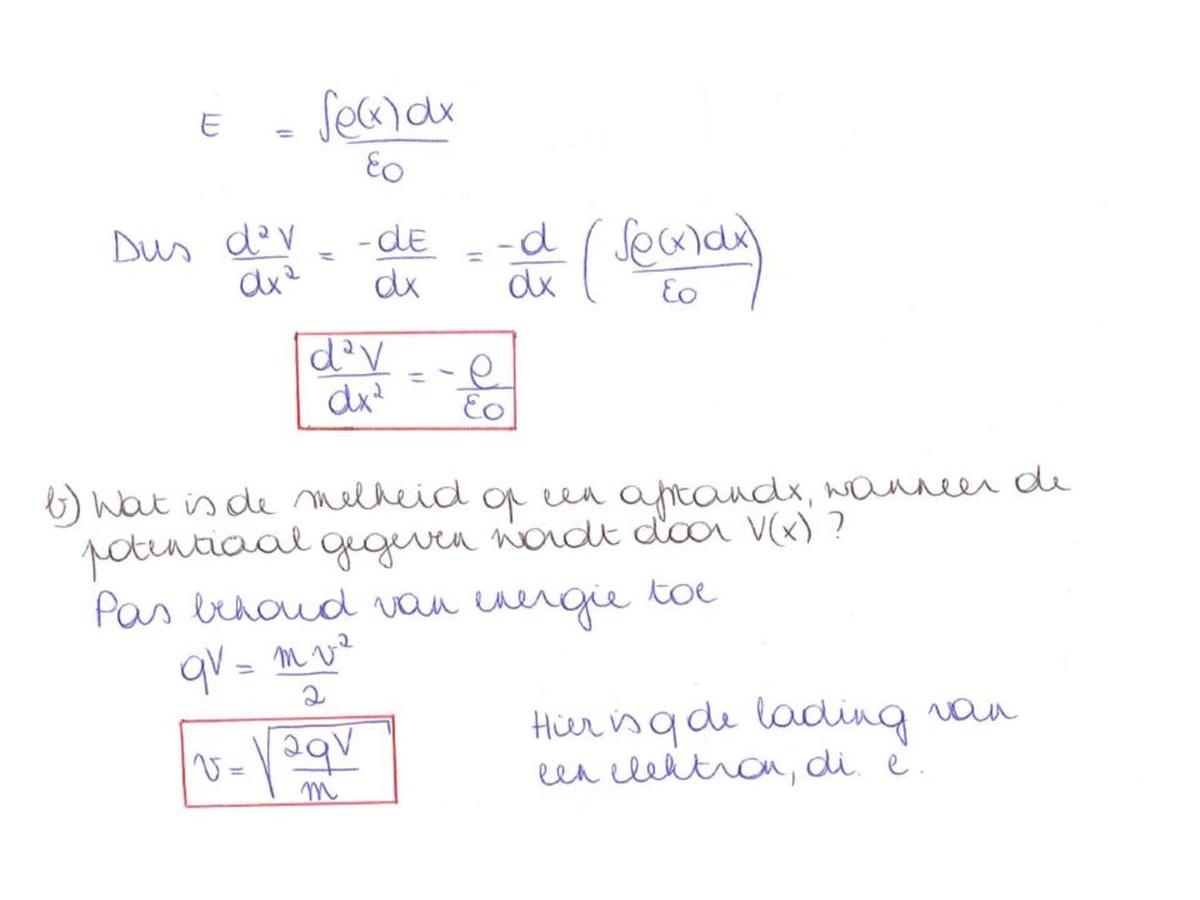 E = ∫ρ(x)dx / ε0
Dus d²V/dx² = -dE/dx = -d/dx (∫ρ(x)dx / ε0)
d²V/dx² = -ρ/ε0
b) Wat is de snelheid op een afstand x, wanneer de
potentiaal gegeven wordt door V(x) ?
Pas behoud van energie toe
qV = mv²/2
v = √(2qV/m)
Hier is q de lading van
een elektron, di. e.